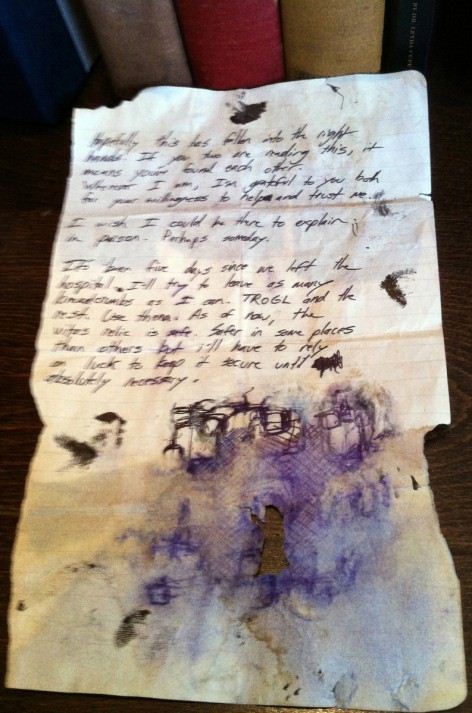 Hopefully this has fallen into the right
hands. If you two are reading this, it
means you've found each other.
Wherever I am, I'm grateful to you both
for your willingness to help and trust me.
I wish I could be there to explain
in person. Perhaps someday.
It's been five days since we left the
hospital. I'll try to leave as many
breadcrumbs as I can. TROGL and the
rest. Use them. As of now, the
wife's relic is safe. Safer in some places
than others but I'll have to rely
on luck to keep it secure until
absolutely necessary.